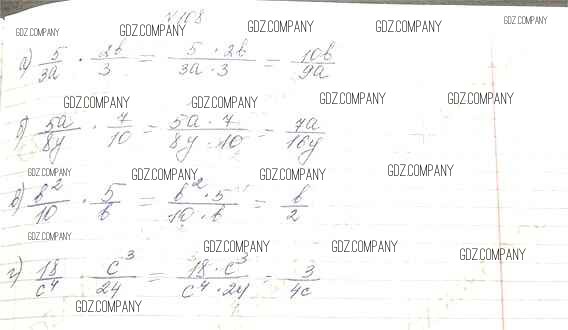 №108
GDZ.COMPANY GDZ.COMPANY GDZ.COMPANY GDZ.COMPANY GDZ.COMPANY
а) 5/3a · 2b/3 = 5 · 2b/3a · 3 = 10b/9a
GDZ.COMPANY GDZ.COMPANY GDZ.COMPANY GDZ.COMPANY
б) 5a/8y · 7/10 = 5a · 7/8y · 10 = 7a/16y
GDZ.COMPANY GDZ.COMPANY GDZ.COMPANY GDZ.COMPANY
в) b²/10 · 5/b = b² · 5/10 · b = b/2
GDZ.COMPANY GDZ.COMPANY GDZ.COMPANY GDZ.COMPANY
г) 18/c⁴ · c³/24 = 18 · c³/c⁴ · 24 = 3/4c
GDZ.COMPANY